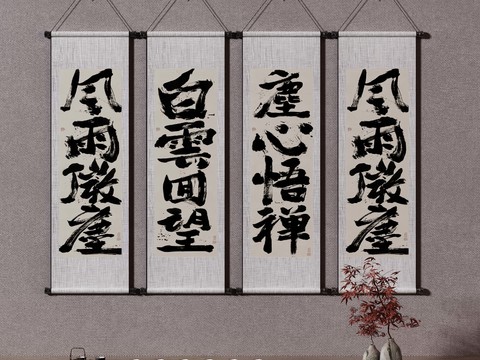 风雨微塵
塵心悟禅
白雲回望
风雨微塵